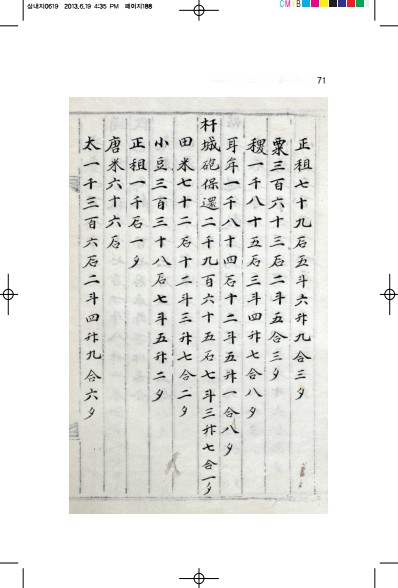 삼내지0619 2013.6.19 4:35 PM 페이지188
CM B
71
正租七十九石五斗六升九合三夕
粟三百六十三石二斗五合三夕
稷一千八十五石三斗四升七合八夕
耳牟一千八十四石十二斗五升一合八夕
杆城砲保還二千九百六十五石七斗三升七合一夕
田米七十二石十二斗三升七合二夕
小豆三百三十八石七斗五升二夕
正租一千石一夕
唐米六十六石
太一千三百六石二斗四升九合六夕